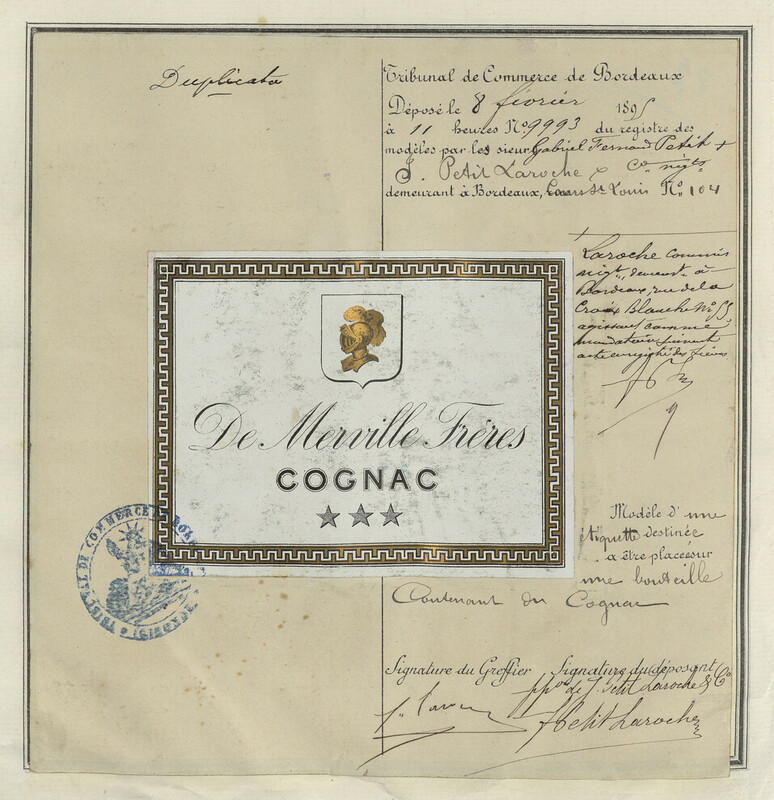 Duplicata
Tribunal de Commerce de Bordeaux
Déposé le 8 février 1895
à 11 heures No. 9993 du registre des
modèles par les sieur Gabriel Fernand Petit +
J. Petit Laroche & Cie négts
demeurant à Bordeaux, Cours St Louis No. 104
Laroche commis
négt. demeurt à
Bordeaux, rue de la
Croix Blanche No 55
agissant comme
mandataire suivant
acte enregistré des sieurs
De Merville Frères
COGNAC
Modèle d'une
étiquette destinée
a être placée sur
une bouteille
Contenant du Cognac
TRIBUNAL DE COMMERCE DE BORDEAUX
(GIRONDE)
Signature du Greffier Signature du déposant
ppon de J. Petit Laroche & Co
Petit Laroche